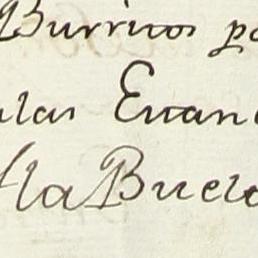 Burricos pa
ulas Euan
sla Buelo